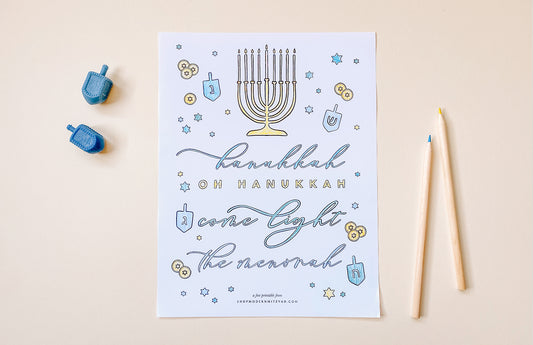 נ
ש
hanukkah
OH HANUKKAH
come light
ג
the menorah
ה
a free printable from
SHOPMODERNMITZVAH.COM